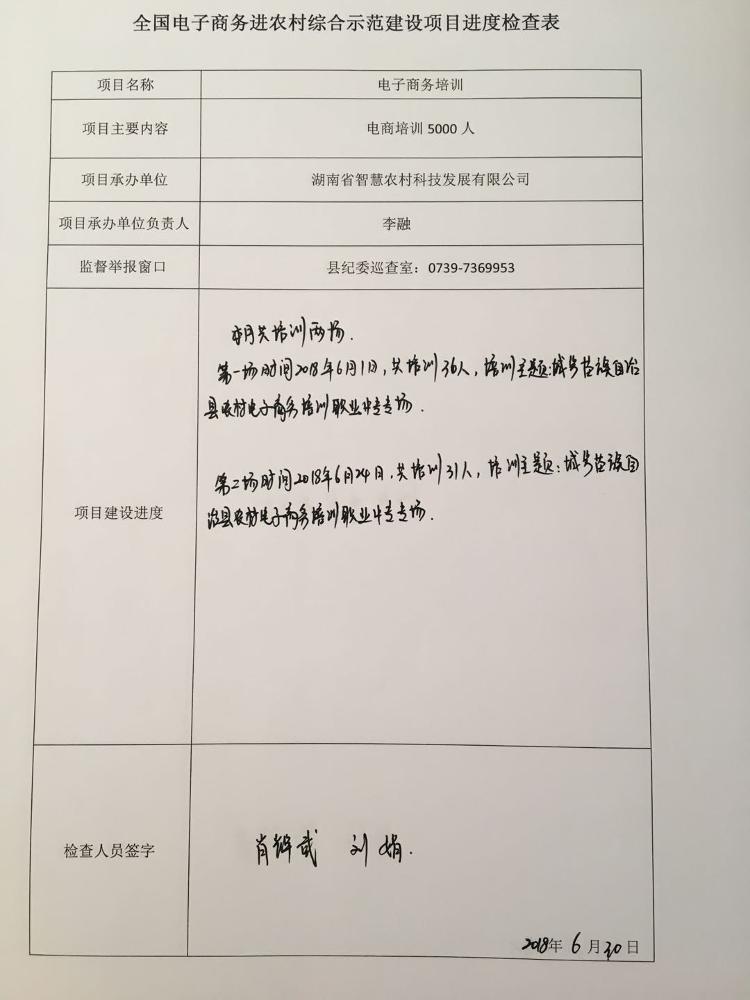 全国电子商务进农村综合示范建设项目进度检查表
项目名称
电子商务培训
项目主要内容
电商培训 5000 人
项目承办单位
湖南省智慧农村科技发展有限公司
项目承办单位负责人
李融
监督举报窗口
县纪委巡查室：0739-7369953
项目建设进度
本月共培训两场.
第一场时间2018年6月1日,共培训36人,培训主题:城步苗族自治
县农村电子商务培训职业中专专场.
第二场时间2018年6月24日,共培训31人,培训主题:城步苗族自
治县农村电子商务培训职业中专专场.
检查人员签字
肖 武 刘娟.
2018年 6 月30日